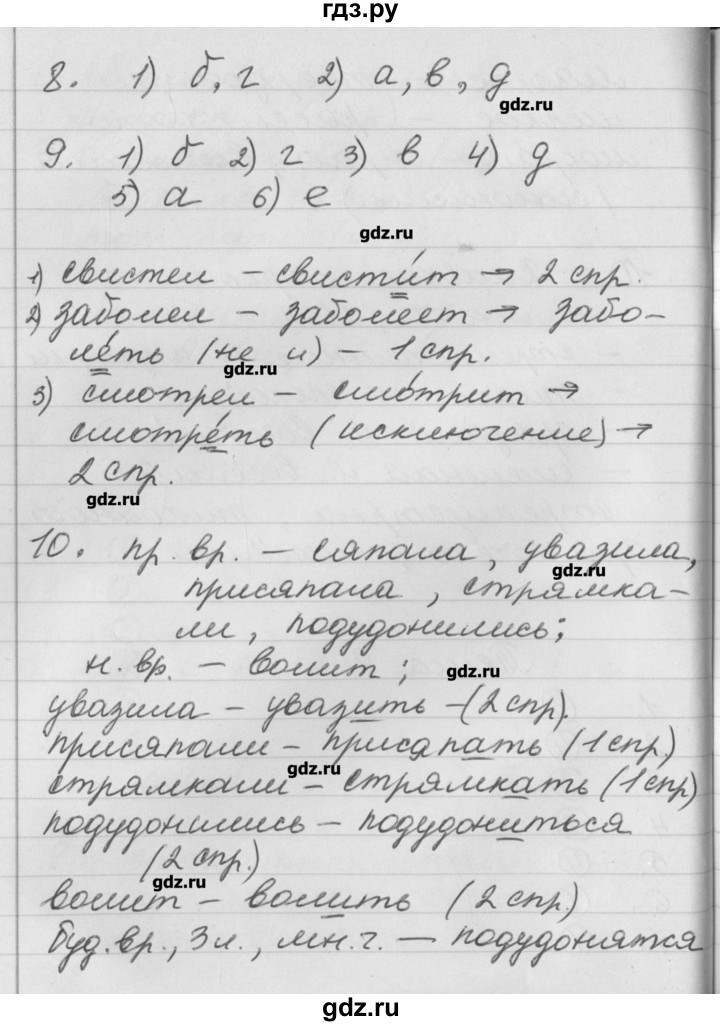 гдз.ру
8. 1) б, г 2) а, в, д
gdz.ru
9. 1) б 2) г 3) в 4) д
5) а 6) е
gdz.ru
1) свистел – свисти́т → 2 спр.
2) заболел – заболеет → забо-
ле́ть (не и) – 1 спр.
gdz.ru
3) смотрел – смо́трит →
смотре́ть (исключение) →
2 спр.
gdz.ru
10. пр. вр. – сяпала, увазила,
gdz.ru
присяпала, стрямка-
ли, подудонились;
н. вр. – волит;
gdz.ru
увазила – увазить – (2 спр).
присяпали – присяпать (1 спр.)
gdz.ru
стрямкали – стрямкать (1 спр)
подудонились – подудониться
(2 спр.)
gdz.ru
волит – волить (2 спр.)
буд. вр., 3 л., мн. ч. – подудонятся
gdz.ru